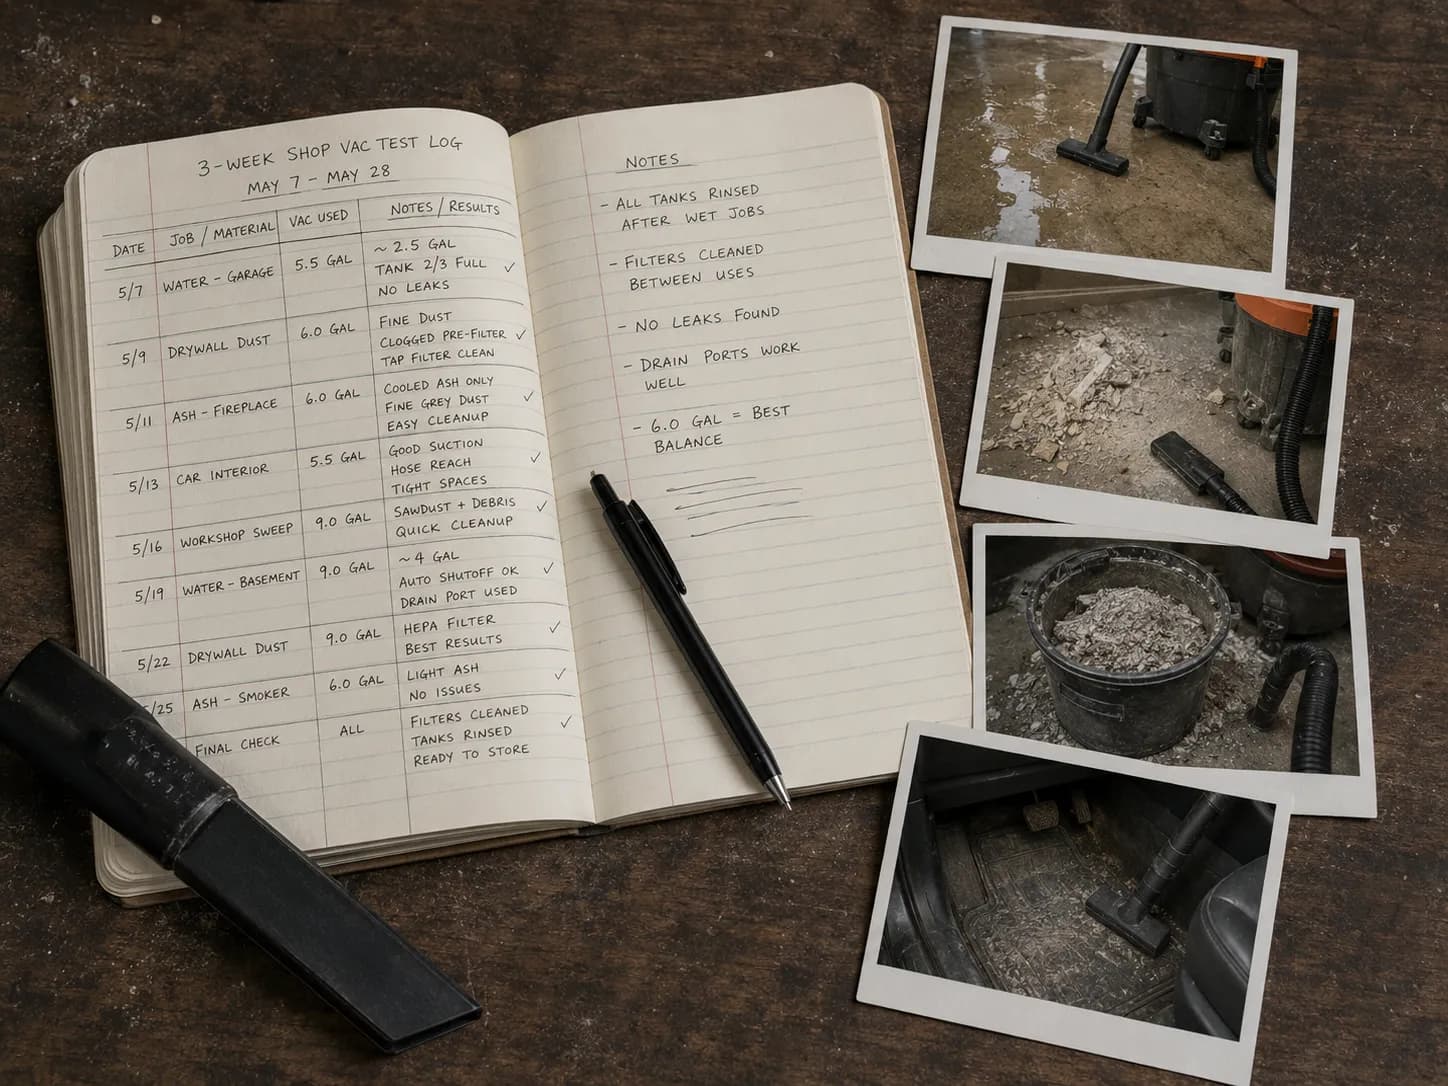 3-WEEK SHOP VAC TEST LOG
MAY 7 - MAY 28
DATE JOB / MATERIAL VAC USED NOTES / RESULTS
5/7 WATER - GARAGE 5.5 GAL ~ 2.5 GAL
TANK 2/3 FULL ✓
NO LEAKS
5/9 DRYWALL DUST 6.0 GAL FINE DUST
CLOGGED PRE-FILTER ✓
TAP FILTER CLEAN
5/11 ASH - FIREPLACE 6.0 GAL COOLED ASH ONLY
FINE GREY DUST ✓
EASY CLEANUP
5/13 CAR INTERIOR 5.5 GAL GOOD SUCTION
HOSE REACH ✓
TIGHT SPACES
5/16 WORKSHOP SWEEP 9.0 GAL SAWDUST + DEBRIS ✓
QUICK CLEANUP
5/19 WATER - BASEMENT 9.0 GAL ~ 4 GAL
AUTO SHUTOFF OK ✓
DRAIN PORT USED
5/22 DRYWALL DUST 9.0 GAL HEPA FILTER ✓
BEST RESULTS
5/25 ASH - SMOKER 6.0 GAL LIGHT ASH ✓
NO ISSUES
FINAL CHECK ALL FILTERS CLEANED ✓
TANKS RINSED
READY TO STORE
NOTES
- ALL TANKS RINSED
AFTER WET JOBS
- FILTERS CLEANED
BETWEEN USES
- NO LEAKS FOUND
- DRAIN PORTS WORK
WELL
- 6.0 GAL = BEST
BALANCE